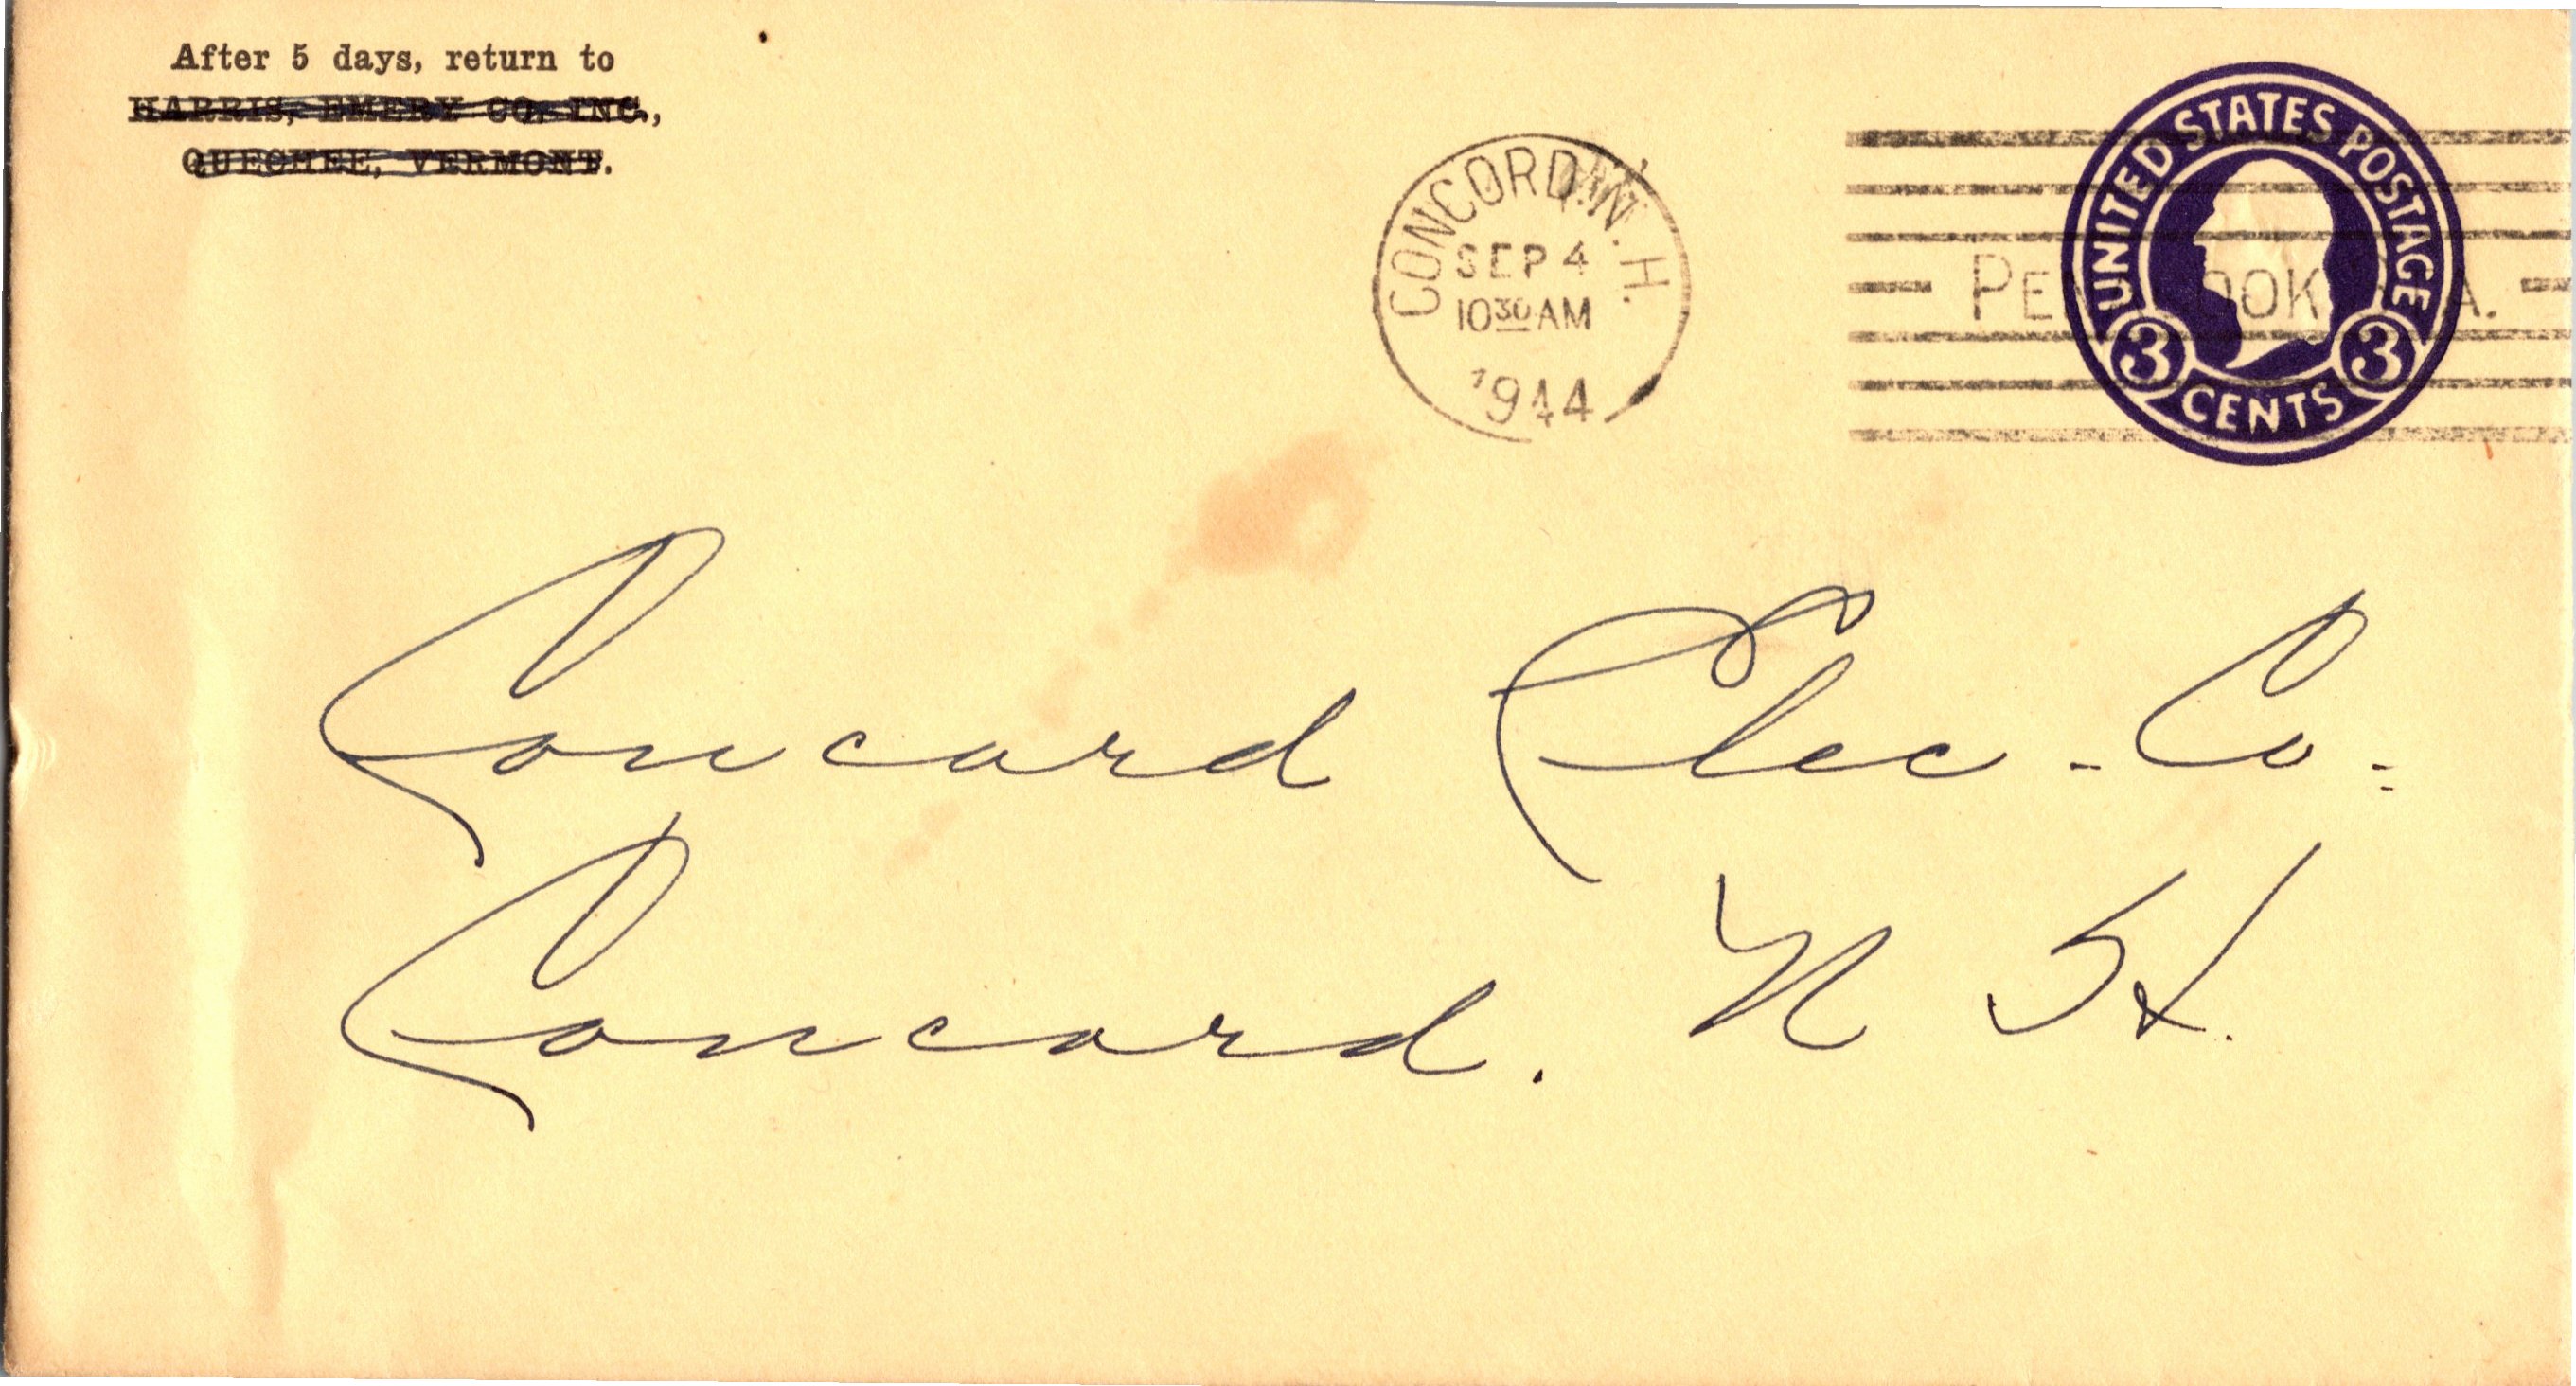 After 5 days, return to
HARRIS, EMERY CO. INC.,
QUECHEE, VERMONT.
CONCORD, N.H.
SEP 4
10 30 AM
1944
UNITED STATES POSTAGE
3 CENTS 3
Concord Elec. Co.
Concord. N H.